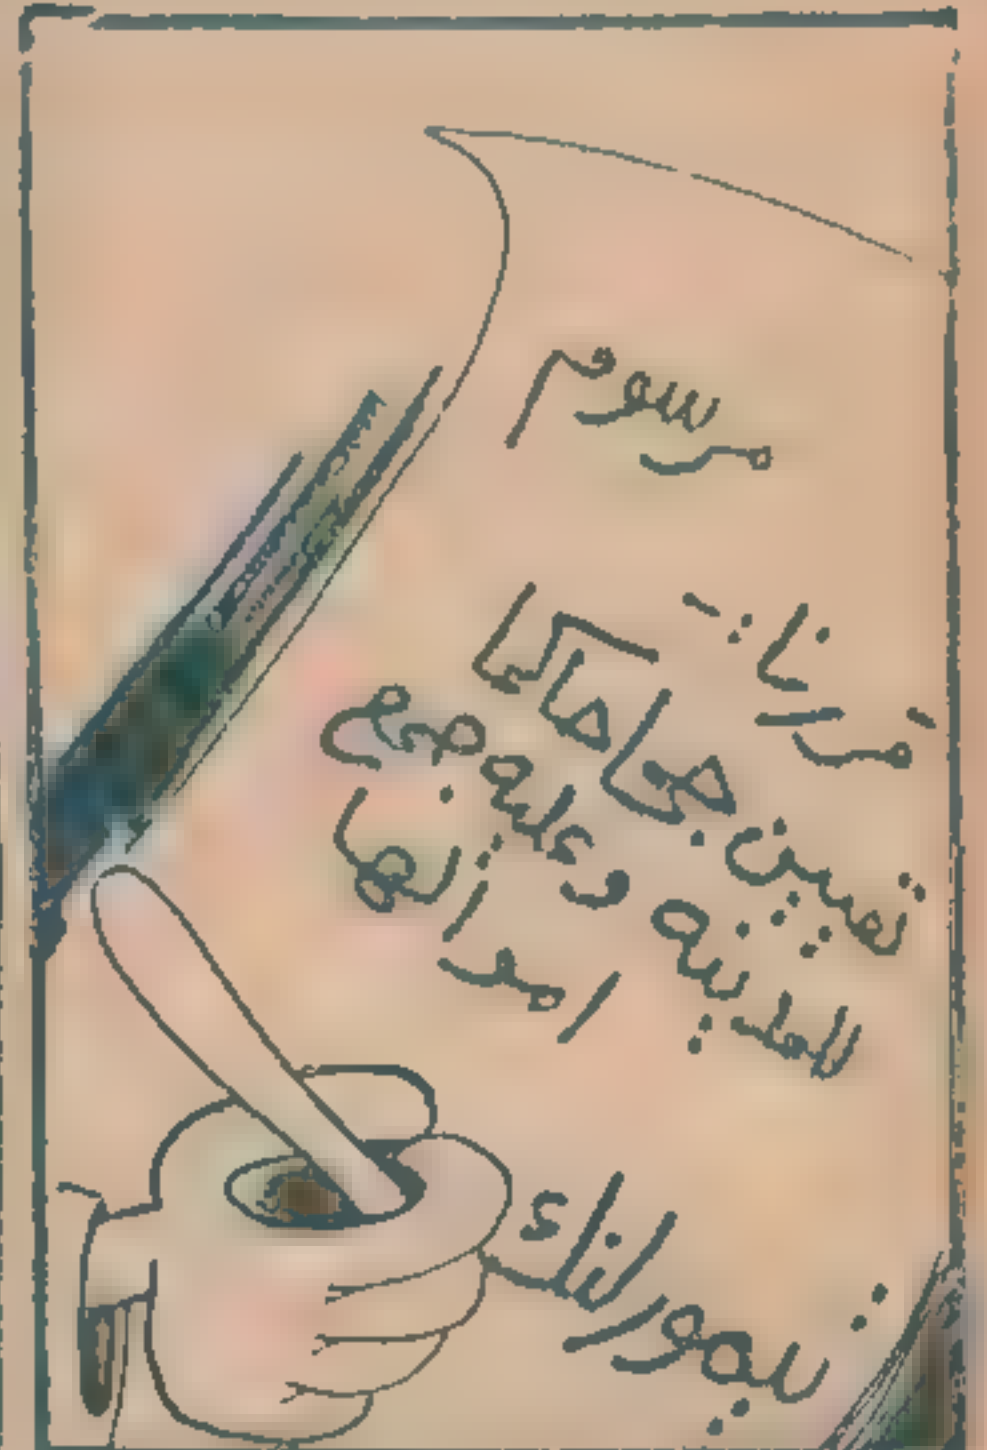 مرسوم
قررنا:-
تعيين جحا حاكما
للمدينة وعليه وضع
امضائها
تيمورلنك